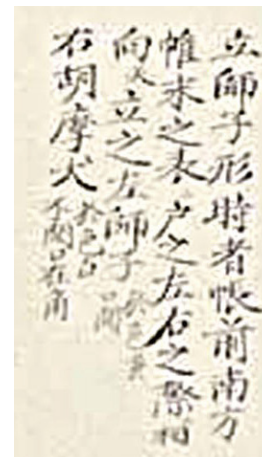 立師子形時者帳前南方
帷末之木戸之左右之際相
向天立之左師子於色黄口開
右胡摩犬於色白不開口在角